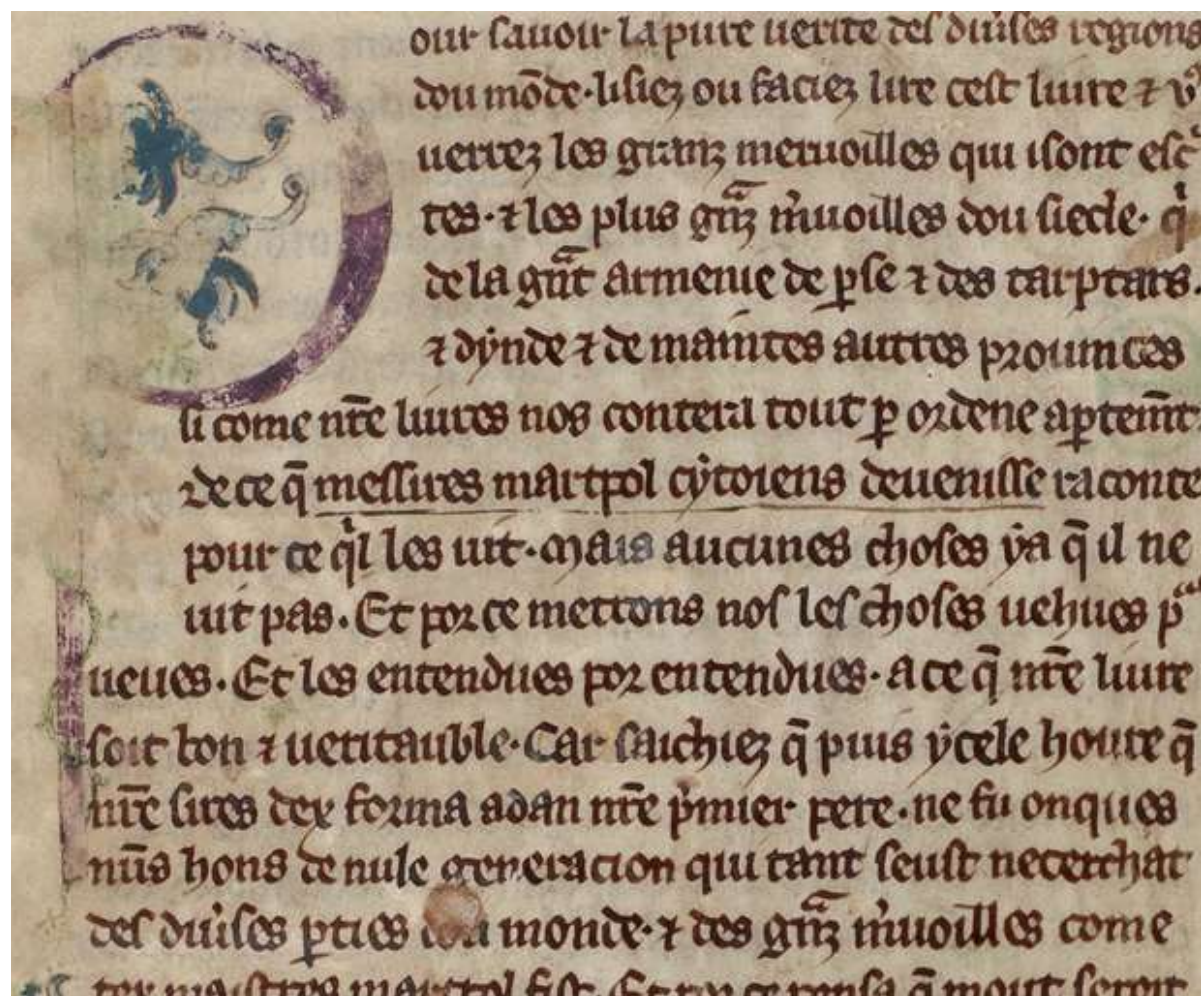 our sauoir la pure uerite des diuˀses regions
dou mōde · lisiez ou faciez lire cest liure ⁊ vˀ
uerrez les granz meruoilles qui isont escˀ
tes · ⁊ les plus gᷓnz mˀuoilles dou siecle · qͥ
de la gᷓnt armenie de ꝑse ⁊ des tarptars ·
⁊ dẏnde ⁊ de maintes autres prouinces
si come nr̄e liures nos contera tout ꝑ ordene aꝑtemn̄t .
⁊ de ce q̄ messires marcpol cẏtoiens deuenisse raconte
pour ce qͥl les uit · mais aucunes choses ẏa q̄ il ne
uit pas . Et por ce mettons nos les choses uehues pᷓ
ueues . Et les entendues por entendues · a ce q̄ nr̄e liure
soit bon ⁊ ueritauble · Car saichiez q̄ puis ẏcele houre q̄
nr̄e sires dex forma adan nr̄e pͥmier pere · ne fu onques
nūs hons de nule generacion qui tant seust necerchat
des diuˀses ꝑties dou monde · ⁊ des gᷓnz mˀuoilles come